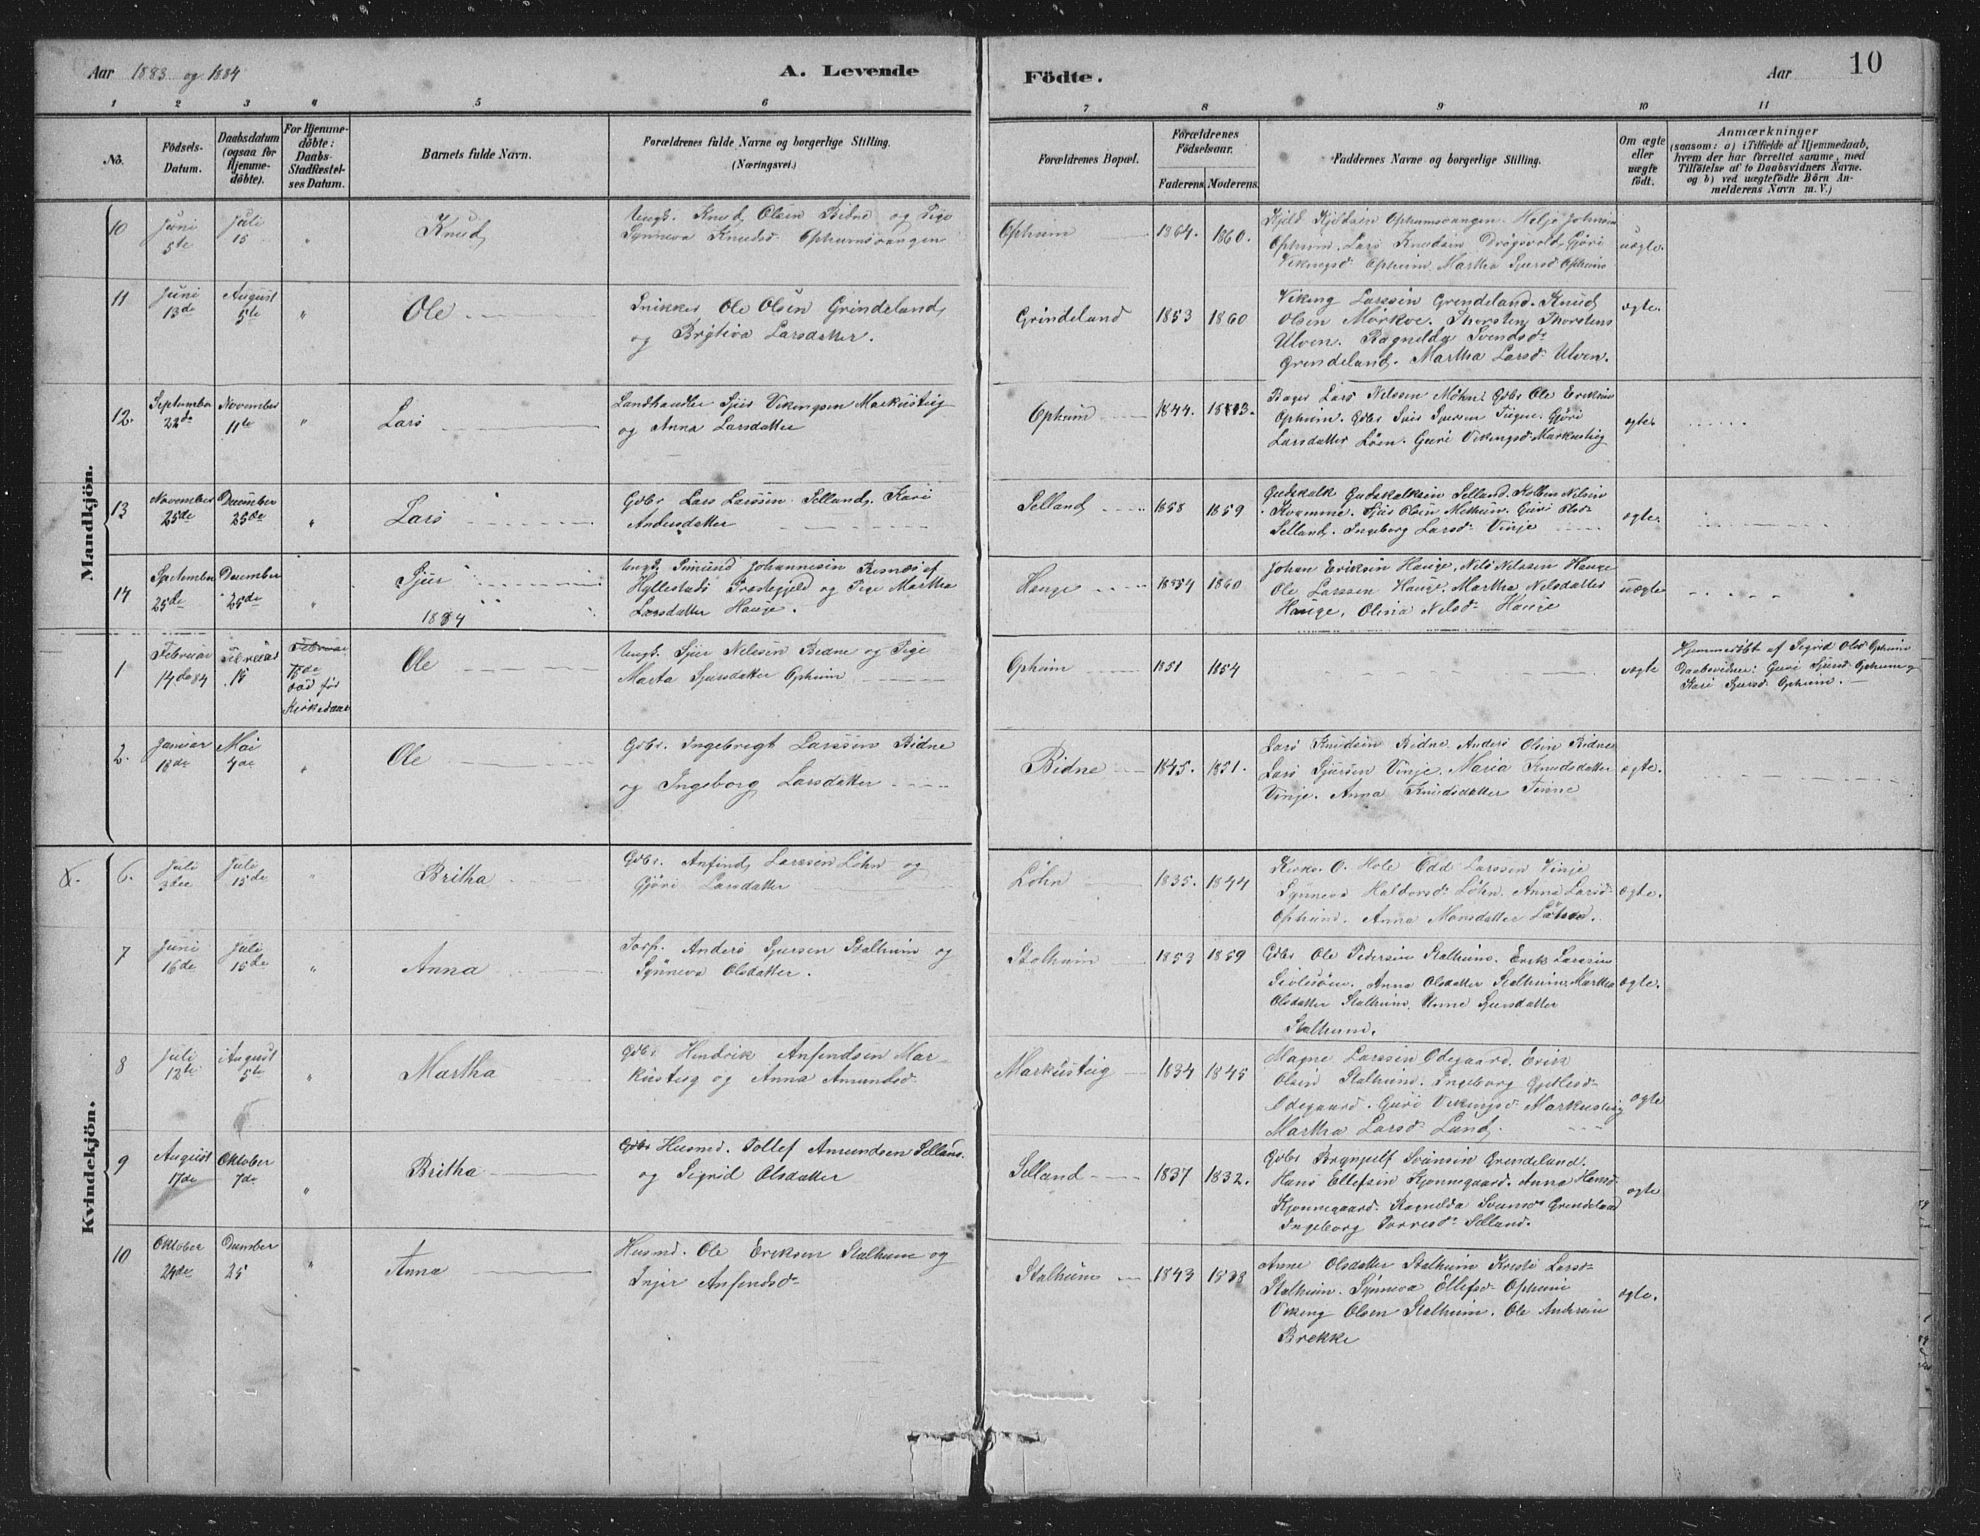 Aar 1883 og 1884
A. Levende
Födte.
Aar
10
1 2 3 4 5 6 7 8 9 10 11
No.
Födsels-
Datum.
Daabsdatum
(ogsaa for
Hjemme-
döbte).
For Hjemme-
döbte:
Daabs-
Stadfæstel-
ses Datum.
Barnets fulde Navn.
Forældrenes fulde Navne og borgerlige Stilling.
(Næringsvei.)
Forældrenes Bopæl.
Forældrenes
Födselsaar.
Faderens. Moderens.
Faddernes Navne og borgerlige Stilling.
Om ægte
eller
uægte
födt.
Anmærkninger
(saasom: a) i Tilfælde af Hjemmedaab,
hvem der har forrettet samme, med
Tilföielse af to Daabsvidners Navne.
og b) ved uægtefödte Börn An-
melderens Navn m. V.)
Mandkjön.
10
Juni
5te
Juli
15
"
Knud
Ungk. Knud Olsen Bidne og Pige
Synneva Knudsd. Ophumsvangen
Ophum
1864. 1860.
Kjeld Kjeldsen Ophumsvangen. Helje Johnsen
Ophum. Lars Knudsen Drøgsvold, Gjöri
Vikingsd. Ophum Martha Sjursd. Ophum
uægte.
11
Juni
13de
August
5te
"
Ole
Snikker Ole Olsen Grindeland,
og Brytiva Larsdatter.
Grindeland
1853 1860
Viking Larssen Grendeland. Knud
Olsen Mörkve. Thorsten Thorstens
Ulven. Ragnilda Svendsd.
Grendeland. Martha Larsd. Ulven.
ægte.
12.
September
22de
November
11te
"
Lars
Landhandler Sjur Vikingsen Markusteig
og Anna Larsdatter
Ophum
1844.
Bager Lars Nilsen Möhn, Gdbr Ole Eriksen
Ophum. Gdbr Sjur Sjursen Gjöri
Larsdatter Löen. Guri Vikingsd. Markusteig
ægte.
13
November
25de
December
25de
"
Lars
Gdbr. Lars Larssen Selland, Kari
Andersdatter
Selland
1858 1859
Gudskalk Gudskalksen Selland. Kolben Nilsen
Kvamme. Sjur Olsen Guri Olsd.
Selland. Ingeborg Larsd. Vinje
ægte.
14
September
25de
December
25de
"
Sjur
Ungk. Simund Johannesen Risnæs af
Hyllestads Præstegjeld og Pige Martha
Larsdatter Hauge.
1884
Hauge
1854 1860
Johan Eriksen Hauge, Nils Nilssen Hauge
Ole Larssen Hauge. Martha Nilsdatter
Hauge, Olina Nilsd. Hauge
uægte
1
Februar
14de 84
Februar
15
Februar
15de
död för
Kirkedaab
Ole
Ungk. Sjur Nilssen Bidne og Pige
Marta Sjursdatter Ophum
Ophum
1851 1854
uægte
Hjemmedöbt af Sigrid Olsd. Ophum
Daabsvidner: Guri Sjursd. Ophum og
Kari Sjursd. Ophum.
2.
Januar
18de
Mai
4de
"
Ole
Gdbr. Ingebrigt Larssen Bidne
og Ingeborg Larsdatter
Bidne
1845. 1851.
Lars Knudsen Bidne. Anders Olsen Bidne,
Lars Sjursen Vinje. Maria Knudsdatter
Vinje. Anna Knudsdatter Tinne
ægte.
Kvindekjön.
6.
Juli
3die
Juli
15de
"
Britha
Gdbr. Anfind Larssen Löhn og
Gjöri Larsdatter
Löhn
1835. 1844
Kirks. O. Hole Odd Larssen Vinje
Synneva Haldorsd. Löhn. Anna Larsd.
Ophum. Anna Monsdatter
ægte.
7
Juni
16de
Juli
15de
"
Anna
Torp. Anders Sjursen Stalhum og
Synneva Olsdatter.
Stalhum
1853 1859
Gdbr Ole Pedersen Stalhum. Erik Larssen
Anna Olsdatter Stalhum, Martha
Olsdatter Stalhum. Unne Sjursdatter
Stalhum.
ægte.
8
Juli
12te
August
5te
"
Martha
Gdbr Hendrik Anfendsen Mar-
kusteig og Anna Amundsd.
Markusteig
1834 1845
Magne Larssen Odegaard. Erik
Olsen Stalhum. Ingeborg Gjetlesd.
Odegaard. Guri Vikingsd. Markusteig
Martha Larsd. Lund.
ægte
9
August
17de
Oktober
7de
"
Britha
Gdbr Husmd. Tollef Amundsen Selland
og Sigrid Olsdatter
Selland
1837 1832.
Gdbr Brynjulf Svensen Grendeland.
Hans Ellefsen Kjonnegaard. Anna Hansd.
Kjonnegaard. Ragnilda Svensd. Grendeland
Ingeborg Torresd. Selland.
ægte
10
Oktober
24de
December
25
"
Anna
Husmd. Ole Eriksen Stalhum og
Inger Anfendsd.
Stalhum
1843 1838
Anne Olsdatter Stalhum Kristi Larsd.
Stalhum. Synneva Ellefsd. Ophum
Viking Olsen Stalhum. Ole Andersen
Brekke
ægte.